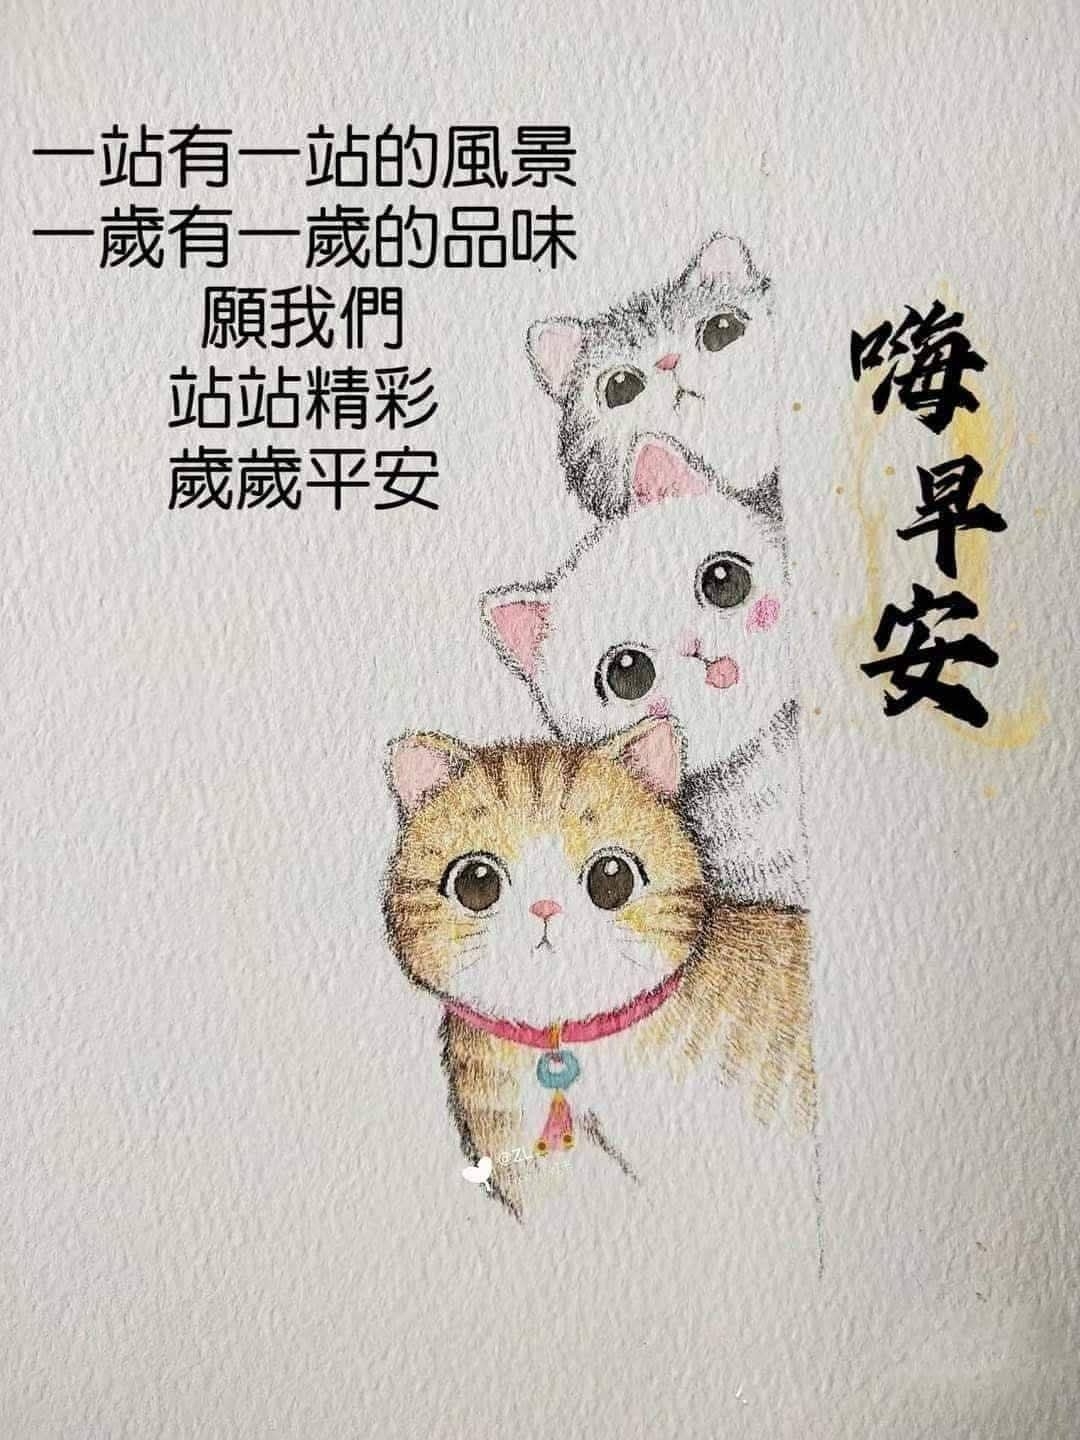 一站有一站的風景
一歲有一歲的品味
願我們
站站精彩
歲歲平安
嗨早安
@ZL